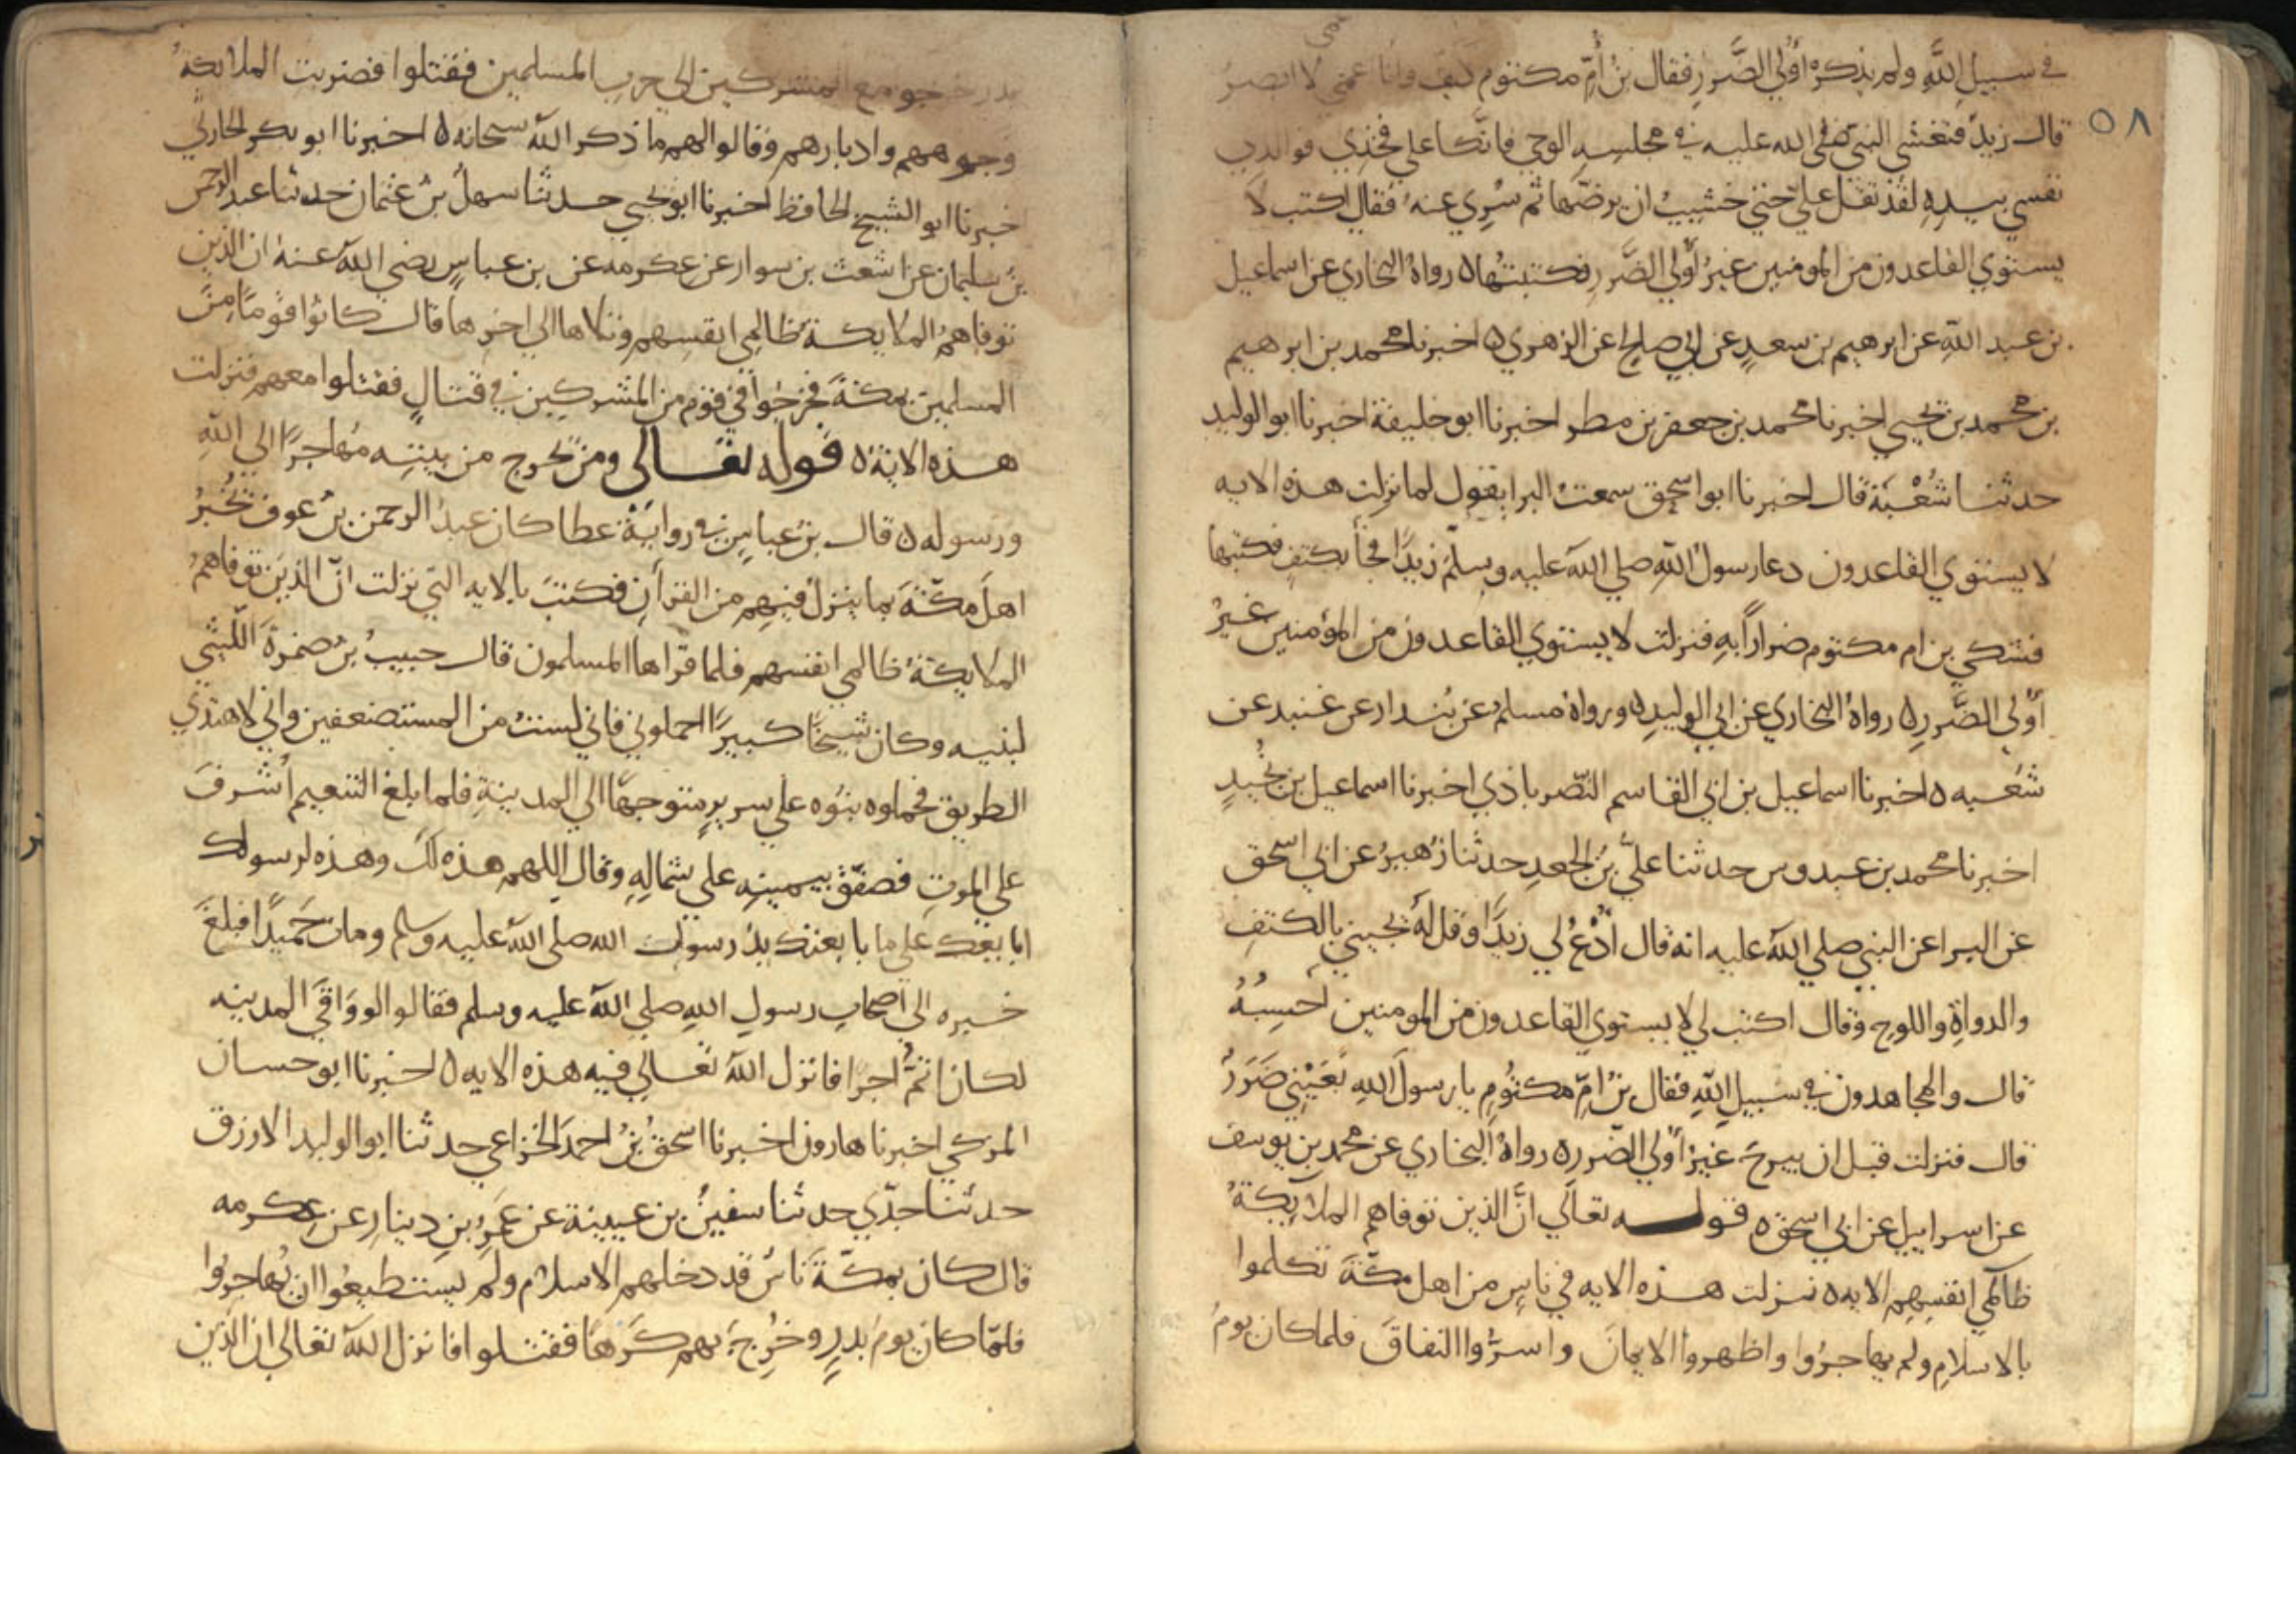 ٥٨
في سبيل اللَّهِ ولم يذكره أُوْلي الضَّررِ فقال بنُ أُمِّ مكتوم كيف وانا اعمى لا ابصرُ
قال زيدٌ فتغشى النبيَّ صلى الله عليه في مجلسِهِ الوحي فاتَّكا على فخذي فوالذي
نفسي بيدِهِ لقد ثقل على حتى خشيتُ ان يرضّها ثم سُرِي عنهُ فقال اكتب لا
يستوي القاعدون من المومنين غيرُ أُولي الضَّررِ فكتبتُها ه رواهُ البخاري عن اسماعيل
بن عبد اللهِ عن ابرهيم بن سعدٍ عن ابي صالحٍ عن الزهري ه اخبرنا محمد بن ابرهيم
بن محمد بن يحيى اخبرنا محمد بن جعفر بن مطر اخبرنا ابو خليفة اخبرنا ابو الوليد
حدثنا شُعْبَة قال اخبرنا ابو اسحق سمعتُ البرا يقول لما نزلت هذه الايه
لا يستوي القاعدون دعا رسولُ اللهِ صلى الله عليه وسلّم زيدًا فجأ بكتفٍ فكتبها
فشكى بن ام مكتوم ضراراً بهِ فنزلت لا يستوي القاعدون من المؤمنين غيرُ
أُولي الضَّررِ ه رواهُ البخاري عن ابي الوليدِ ه ورواهُ مسلمٌ عن بُندار عن غندر عن
شُعبه ه اخبرنا اسماعيل بن ابي القاسم النَّصرباذي اخبرنا اسماعيل بن نُجيدٍ
اخبرنا محمد بن عبدوس حدثنا عليُّ بنُ الجعدِ حدثنا زُهيرُ عن ابي اسحق
عن البرا عن النبي صلى الله عليه انه قال ادْعُ لي زيدًا وقل لهُ يجيني بالكتفِ
والدواةِ واللوحِ وقال اكتب لي لا يستوي القاعدون من المومنين احسِبُهُ
قال والمجاهدون في سبيلِ اللهِ فقال بنُ امِّ مكتُومٍ يا رسولَ اللهِ بعَيْني ضَرَرٌ
قال فنزلت قبل ان يبرحَ غيرُ أُولي الضّررِ ه رواهُ البخاري عن محمد بن يوسف
عن اسراييل عن ابي اسحق ه قوله تعالى انَّ الذين توفاهم الملايكةُ
ظالمي انفسِهِم الايه ه نزلت هذه الايه في ناسٍ من اهل مكّةَ تكلموا
بالاسلامِ ولم يهاجرُوا واظهروا الايمانَ واسرُّوا النفاقَ فلما كان يومُ
بدر خرجو مع المشركين الى حرب المسلمين فقتلوا فضربت الملايكةُ
وجوههم وادبارهم وقالوا لهم ما ذكر الله سبحانه ه اخبرنا ابو بكر الحارثي
اخبرنا ابو الشيخ الحافظ اخبرنا ابو يحيى حدثنا سهلُ بنُ عثمان حدثنا عبد الرحمن
بنُ سليمان عن اشعث بن سوار عن عكرمه عن بن عباسٍ رضي الله عنهُ ان الذين
توفاهمُ الملايكةُ ظالمي انفسِهم وتلاها الى اخرها قال كانُوا قومًا مِنَ
المسلمين بمكةَ فخرجُوا في قوم من المشركين في قتالٍ فقتلوا معهم فنزلت
هذه الاية ه قوله تعالى ومن يخرج من بيتِه مهاجرًا الى اللهِ
ورسوله ه قال بنُ عباسٍ في روايةِ عطا كان عبدُ الرحمن بنُ عوف يُخْبِرُ
اهلَ مكّةَ بما ينزلُ فيهِم من القرآنِ فكتبَ بالايه التي نزلت انَّ الذين توفاهمُ
الملايكةُ ظالمي انفسهم فلما قراها المسلمون قال حبيبُ بنُ ضمرةَ اللّيثي
لبنيه وكان شيخًا كبيرًا احملوني فاني لستُ من المستضعفين واني لا اهتدي
الطريق فحملوه بنُوه على سريرٍ متوجهًا الى المدينةِ فلما بلغ التنعيم أشرفَ
على الموتِ فصفّق بيمينِه على شمالِهِ وقال اللهم هذه لك وهذه لرسولك
ابايعك على ما بايعتك يدُ رسولك الله صلى الله عليه وسلم ومات حَميدًا فبلغَ
خبره الى اصحابِ رسولِ اللهِ صلى الله عليه وسلم فقالوا لو وَافى المدينه
لكان اتمَّ اجرا فانزل اللهُ تعالى فيه هذه الايه ه اخبرنا ابو حسان
المزكي اخبرنا هارون اخبرنا اسحقُ بنُ احمدَ الخزاعي حدثنا ابو الوليد الازرقي
حدثنا جدّي حدثنا سفينُ بن عيينة عن عَمرِو بنِ دينارٍ عن عِكرمه
قال كان بمكّةَ ناسٌ قد دخلهم الاسلام ولم يستطيعُوا ان يُهاجرُوا
فلمّا كان يومُ بدرٍ وخُرِجَ بهم كَرهًا فقتلوا فانزل الله تعالى ان الذين